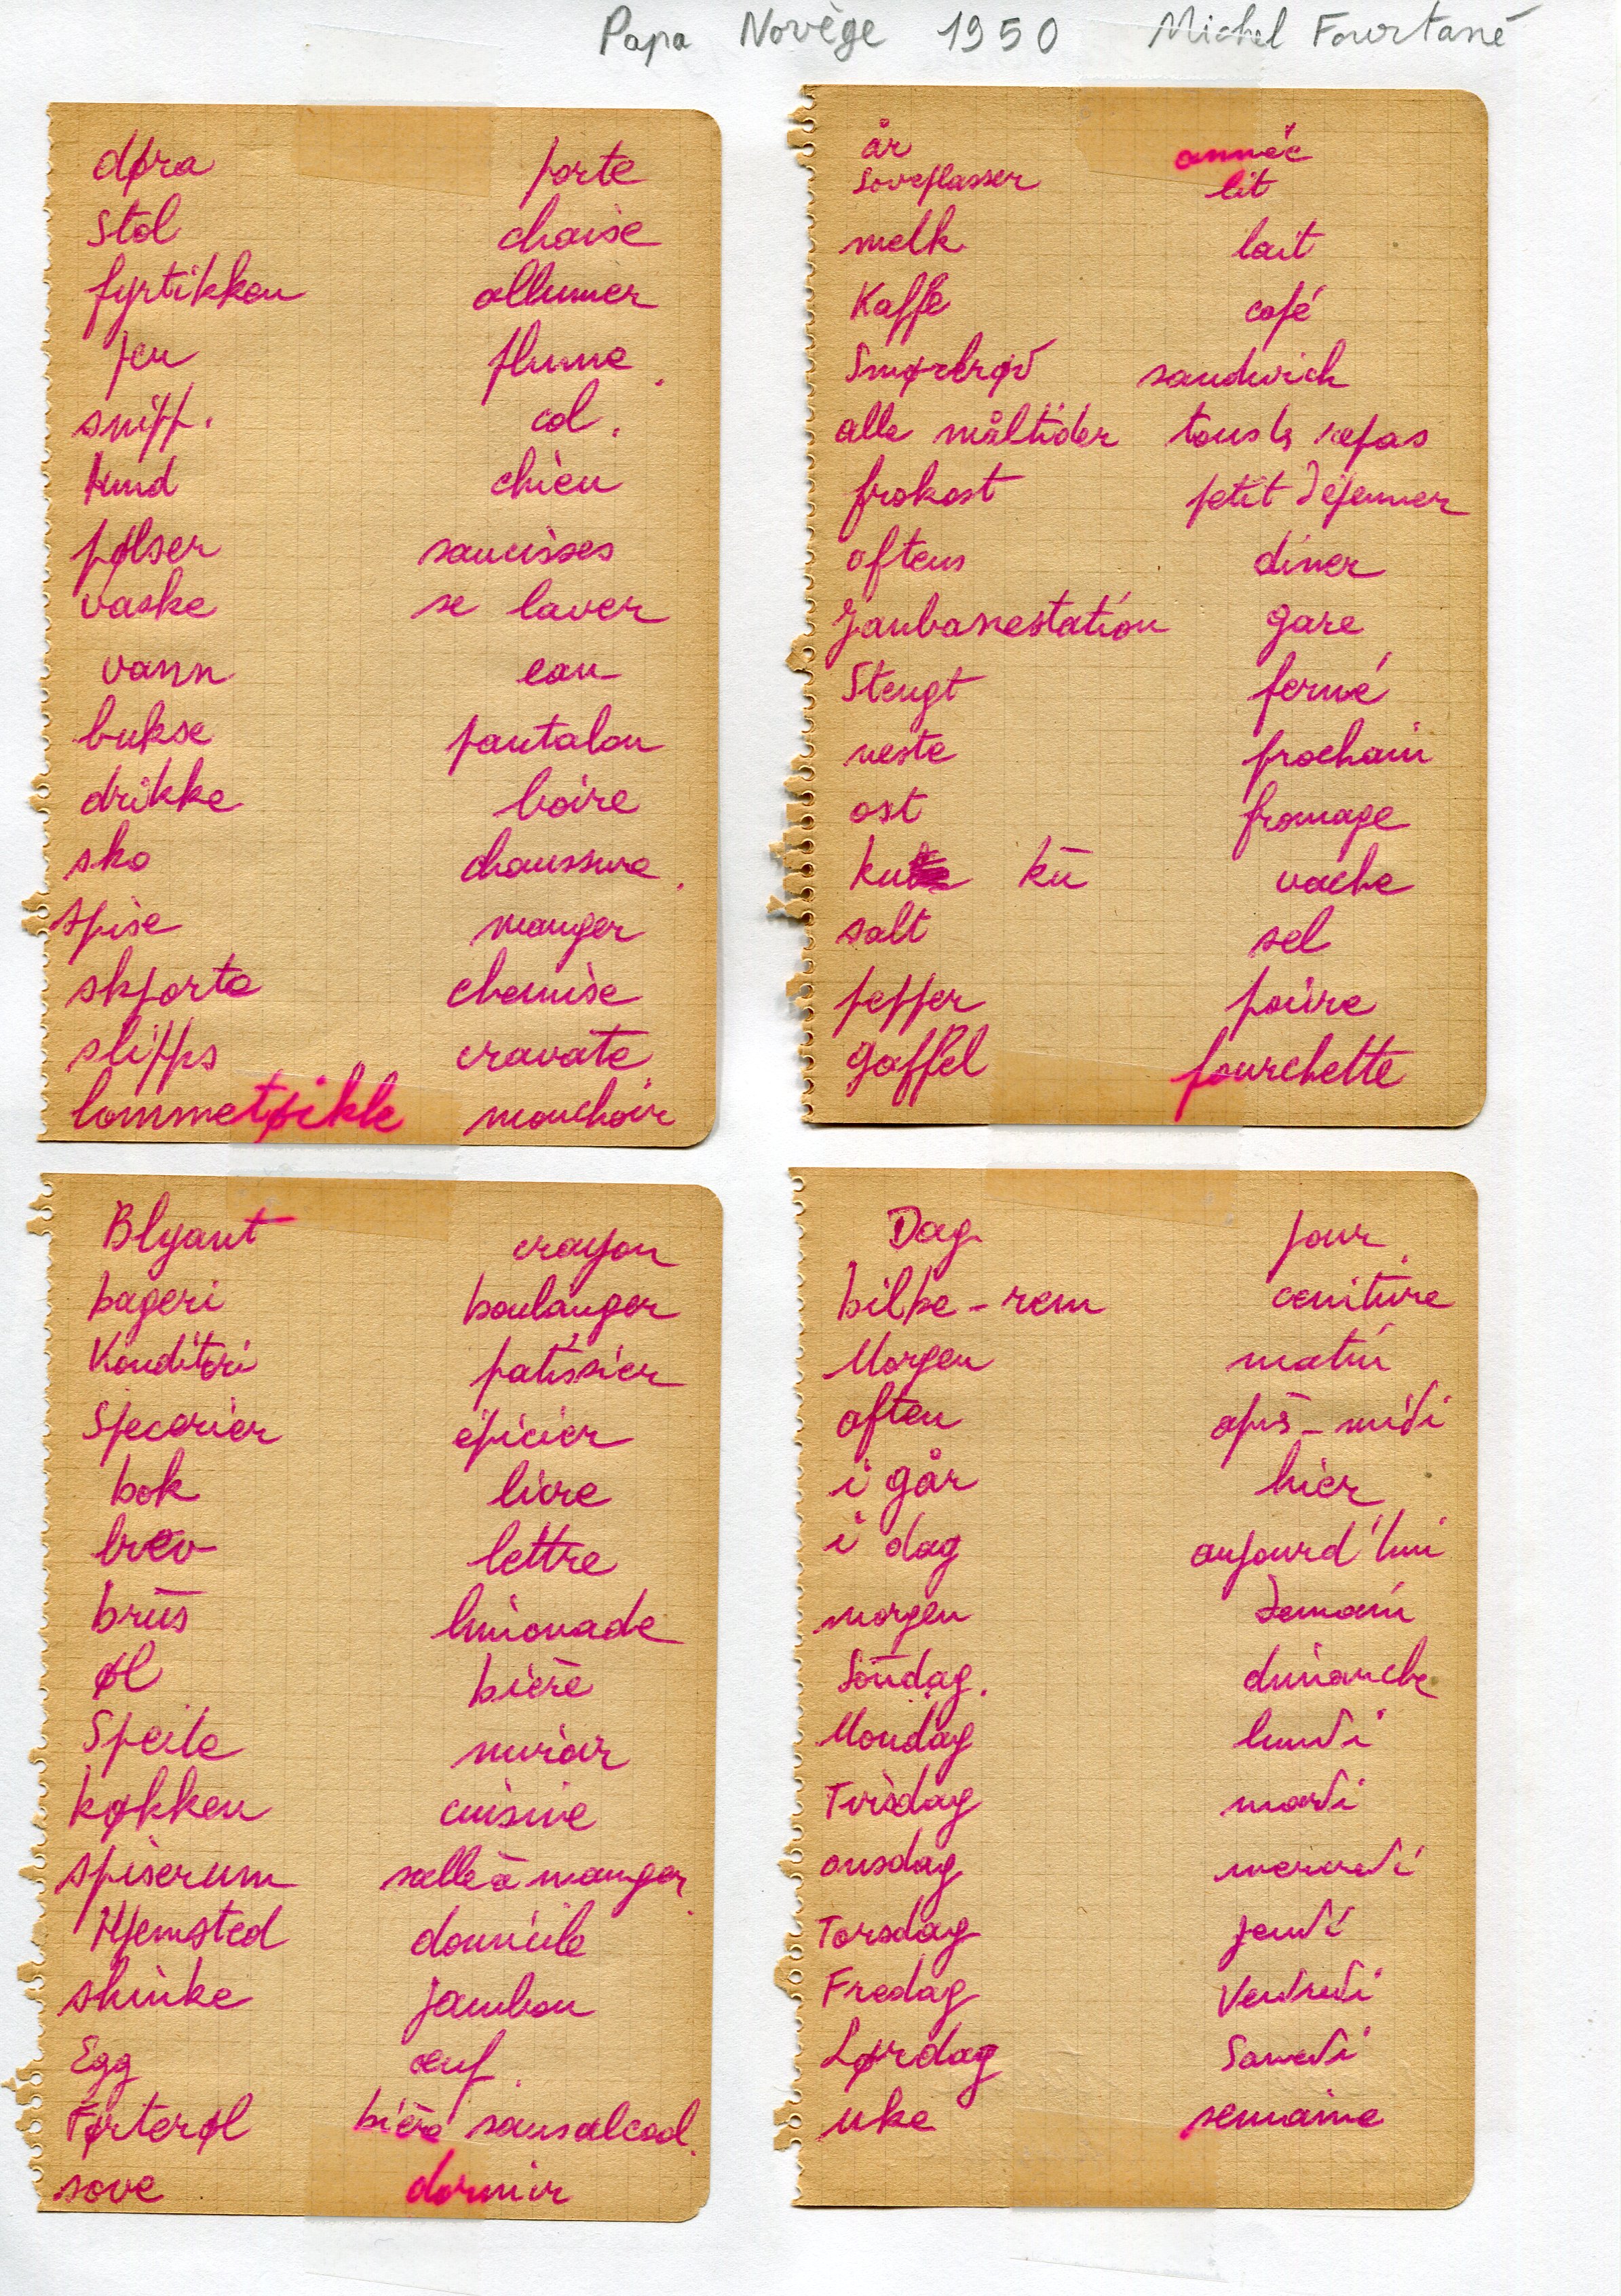 Papa Novège 1950 Michel Fourtané
døra porte
Stol chaise
fyrtikken allumer
pen plume.
snipp. col.
Hund chien
pølser saucisses
vaske se laver
vann eau
bukse pantalon
drikke boire
sko chaussure.
spise manger
skjorte chemise
slipps cravate
lommetøikle mouchoir
år année
Soveplasser lit
melk lait
Kaffe café
Smørbrød sandwich
alle måltider tous ls repas
frokost petit déjeuner
oftens diner
Janbanestation gare
Stengt fermé
neste prochain
ost fromage
ku kū vache
salt sel
pepper poivre
gaffel fourchette
Blyant crayon
bageri boulanger
Konditori patissier
Specerier épicier
bok livre
brev lettre
brūs limonade
øl bière
Speile miroir
køkken cuisine
spiserum salle à manger
Hjemsted domicile
shinke jambon
Egg œuf.
Førterøl bière sans alcool.
sove dormir
Dag jour
bilbe-rem ceniture
Morgen matin
often après-midi
i går hier
i dag aujourd'hui
morgen demain
Søndag. dimanche
Mondag lundi
Tirsdag mardi
onsdag mercredi
Torsdag jeudi
Fredag Vendredi
Lørdag Samedi
uke semaine